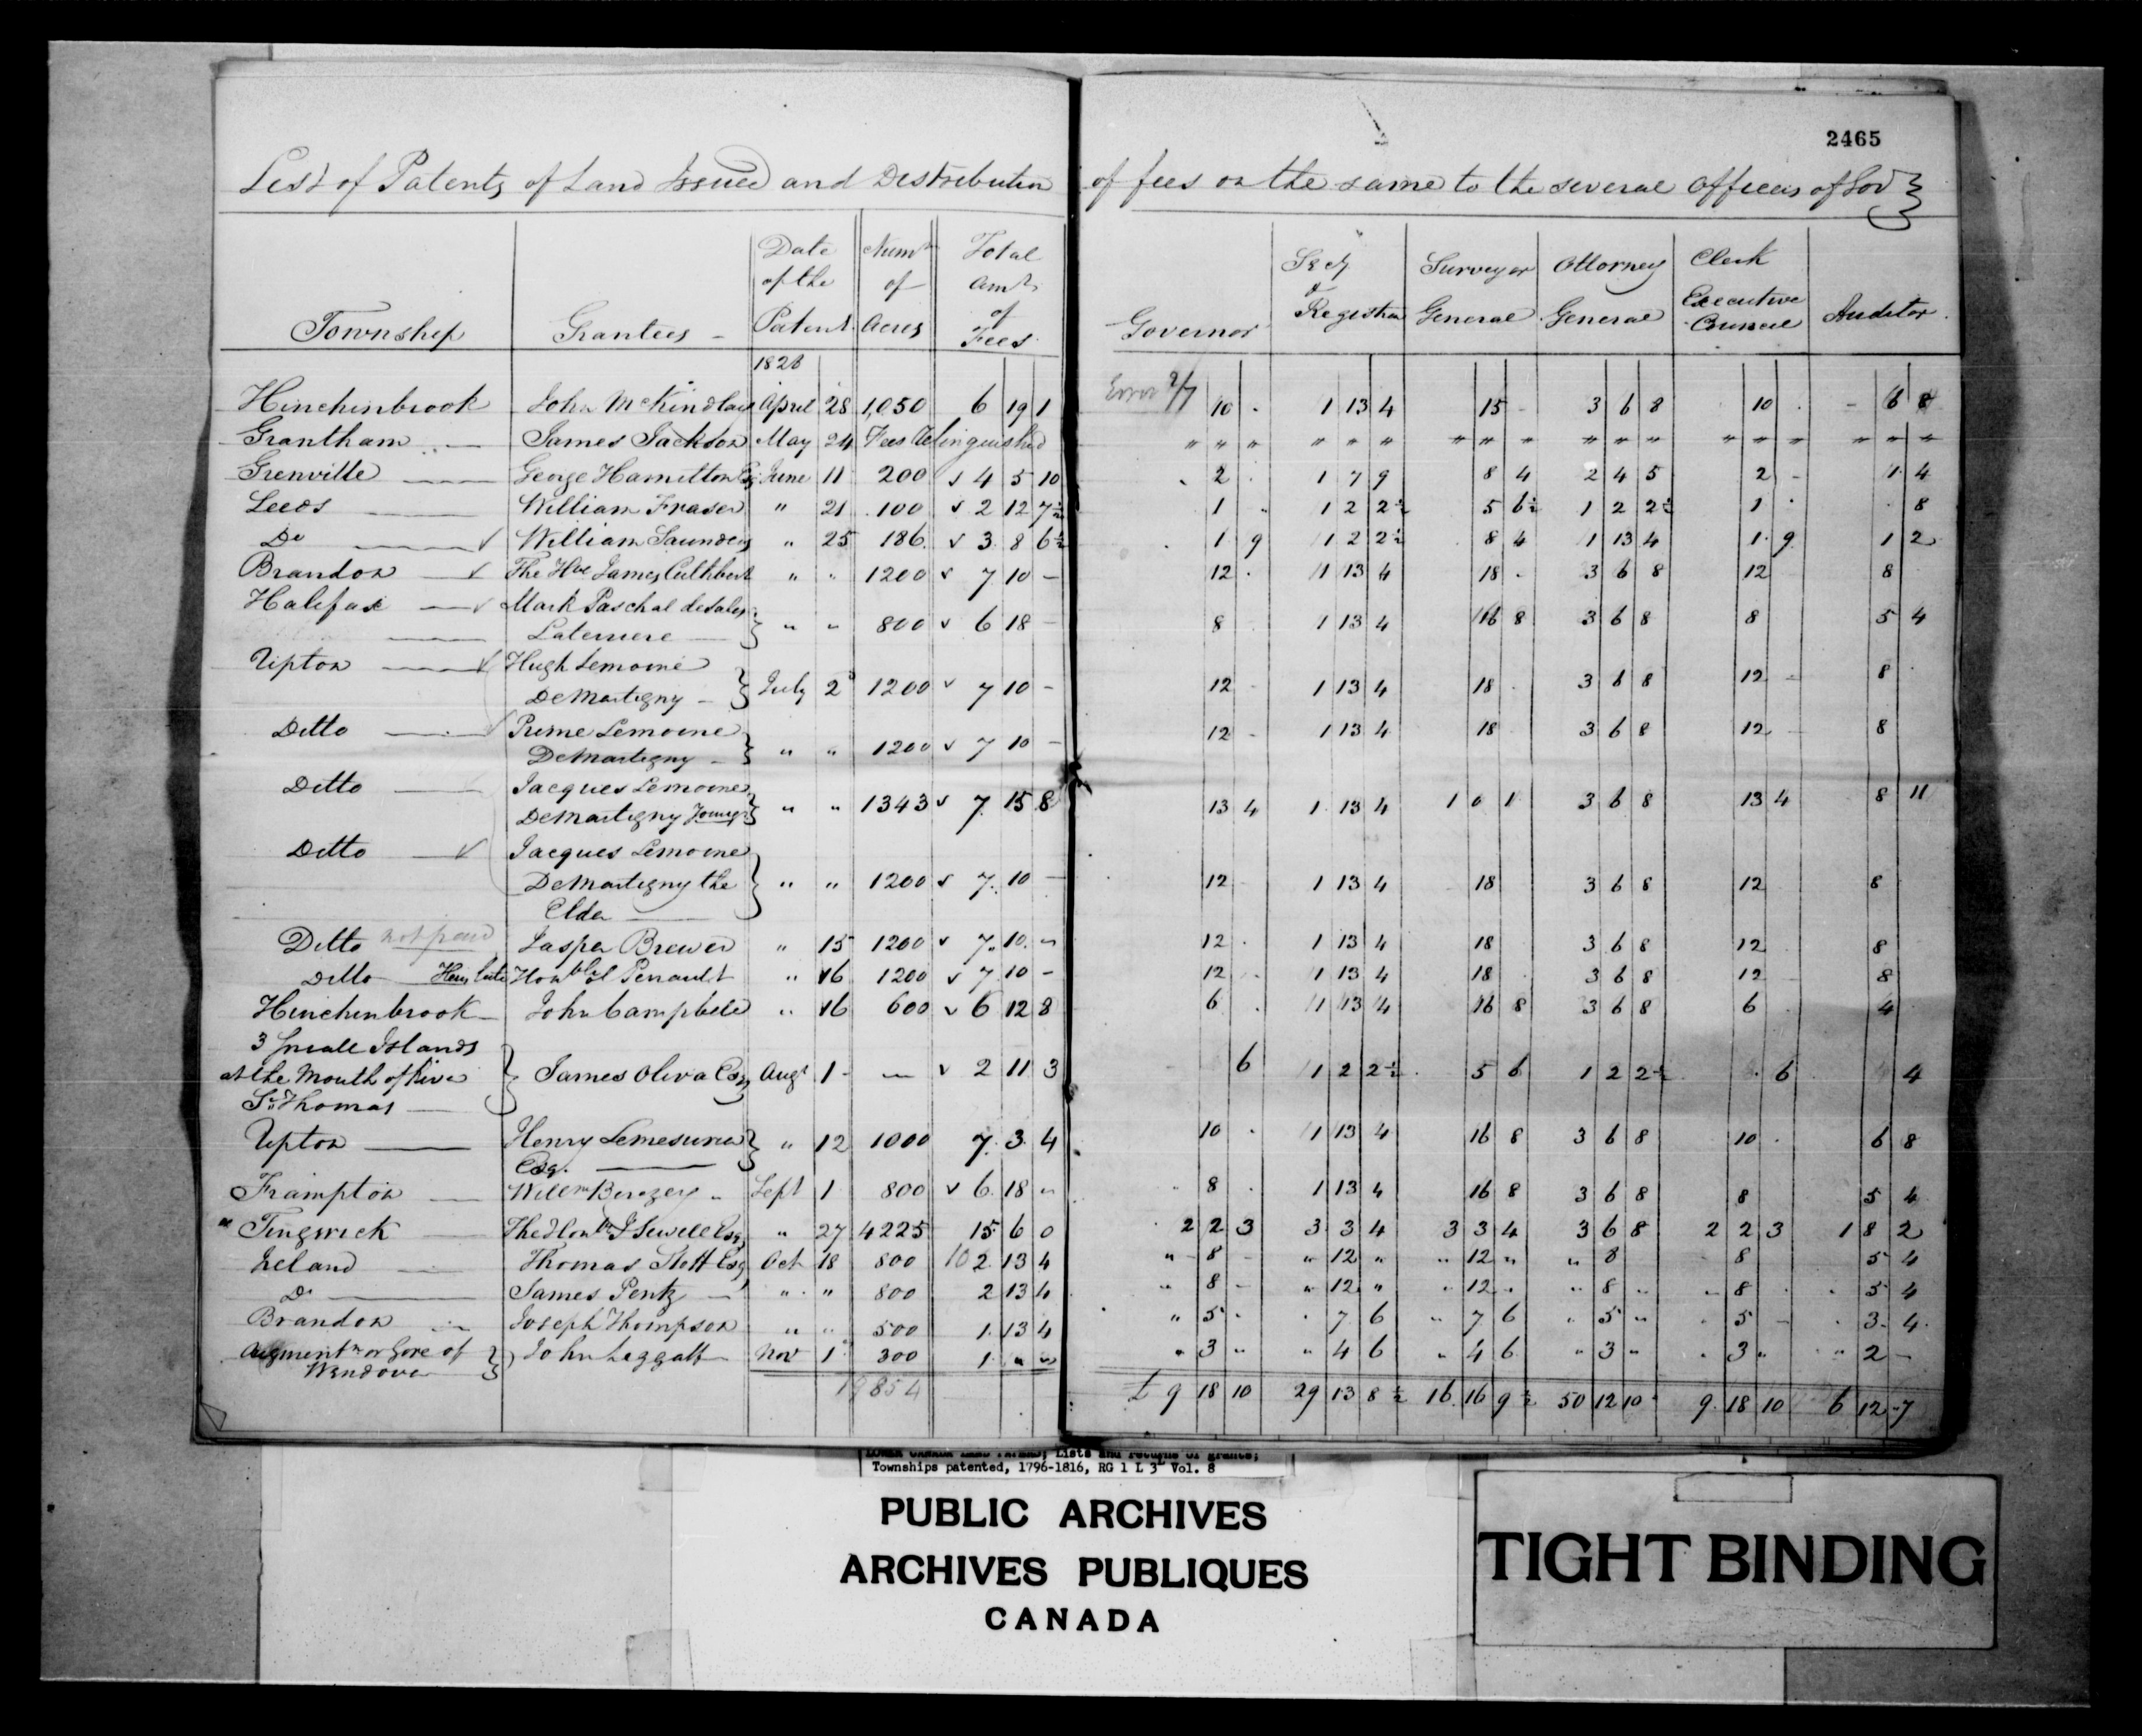 2465
List of Patents of Land Issued and Distribution of fees on the same to the several Officers of Gov
Township Grantees Date of the Patent Numr of Acres Total Amt of Fees Governor Secy & Registrar Surveyor General Attorney General Clerk Executive Council Auditor
1826
Error 2/7
Hinchinbrook John McKindlay April 28 1,050 6 19 1 10 . 1 13 4 15 - 3 6 8 10 . - 6 8
Grantham James Jackson May 24 Fees Relinquished " " " " " " " " " " " " " " " " " "
Grenville George Hamilton Esq June 11 200 4 5 10 2 . 1 7 9 8 4 2 4 5 2 - 1 4
Leeds William Fraser " 21 100 2 12 7½ 1 " 1 2 2½ 5 6½ 1 2 2½ 1 . 8
Do William Saunders " 25 186 3 8 6½ 1 9 1 2 2½ 8 4 1 13 4 1 9 1 2
Brandon The Hble James Cuthbert " " 1200 7 10 - 12 . 1 13 4 18 . 3 6 8 12 8
Halifax Mark Paschal deSales
Laterriere " " 800 6 18 - 8 1 13 4 16 8 3 6 8 8 5 4
Upton Hugh Lemoine
DeMartigny July 2 1200 7 10 - 12 - 1 13 4 18 . 3 6 8 12 - 8
Ditto Prime Lemoine
DeMartigny " " 1200 7 10 - 12 - 1 13 4 18 3 6 8 12 - 8
Ditto Jacques Lemoine
DeMartigny Younger " " 1343 7 15 8 13 4 1 13 4 1 0 1 3 6 8 13 4 8 11
Ditto Jacques Lemoine
DeMartigny the
Elder " " 1200 7 10 - 12 1 13 4 18 3 6 8 12 8
Ditto not paid Jasper Brewer " 15 1200 7 10 - 12 . 1 13 4 18 3 6 8 12 8
Ditto Honble Perrault " 16 1200 7 10 - 12 1 13 4 18 3 6 8 12 8
Hinchinbrook John Campbell " 16 600 6 12 8 6 . 1 13 4 16 8 3 6 8 6 4
3 Small Islands
at the Mouth of River
St Thomas James Oliva Esq Augt 1 — 2 11 3 6 1 2 2½ 5 6 1 2 2½ 6 4
Upton Henry Lemesurier
Esq. " 12 1000 7 3 4 10 . 1 13 4 16 8 3 6 8 10 . 6 8
Frampton Willm Berczey Sept 1 800 6 18 " 8 . 1 13 4 16 8 3 6 8 8 5 4
" Tingwick The Honble J Sewell Esq " 27 4225 15 6 0 2 2 3 3 3 4 3 3 4 3 6 8 2 2 3 1 8 2
Ireland Thomas Stott Esq Oct 18 800 10 2 13 4 " 8 - " 12 " " 12 " " 8 8 5 4
Do James Pentz " " 800 2 13 4 " 8 - " 12 " " 12 . " 8 " " 8 . 5 4
Brandon Joseph Thompson " " 500 1 13 4 " 5 . . 7 6 " 7 6 " 5 " . 5 - . 3 4
Augmentn or Gore of
Wendover John Leggatt Nov 1 300 1 " " " 3 " " 4 6 " 4 6 " 3 " . 3 " " 2 -
19854 £ 9 18 10 29 13 8½ 16 16 9½ 50 12 10 9 18 10 6 12 7
Townships patented, 1796-1816, RG 1 L 3 Vol. 8
PUBLIC ARCHIVES
ARCHIVES PUBLIQUES
CANADA
TIGHT BINDING